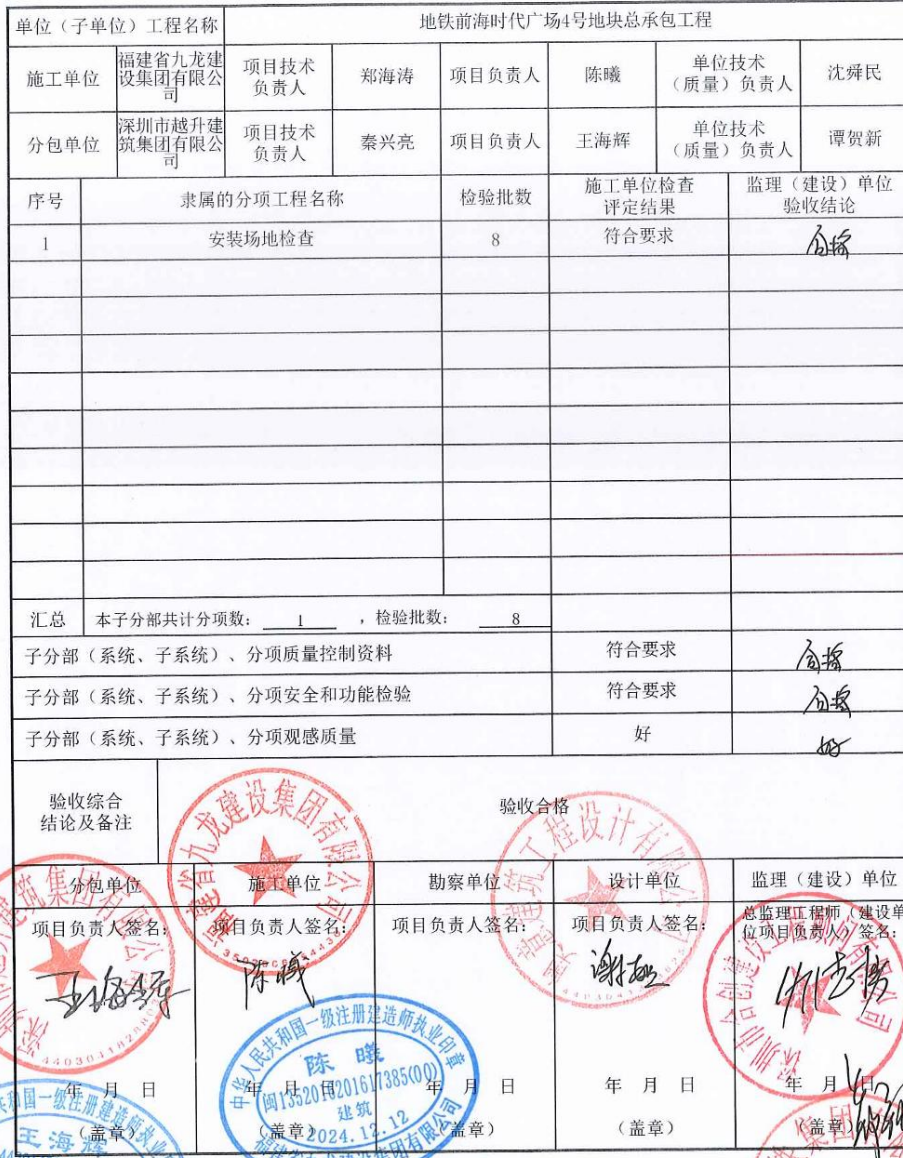 单位（子单位）工程名称 地铁前海时代广场4号地块总承包工程
施工单位 福建省九龙建设集团有限公司 项目技术负责人 郑海涛 项目负责人 陈曦 单位技术（质量）负责人 沈舜民
分包单位 深圳市越升建筑集团有限公司 项目技术负责人 秦兴亮 项目负责人 王海辉 单位技术（质量）负责人 谭贺新
序号 隶属的分项工程名称 检验批数 施工单位检查评定结果 监理（建设）单位验收结论
1 安装场地检查 8 符合要求 合格
汇总 本子分部共计分项数： 1 ，检验批数： 8
子分部（系统、子系统）、分项质量控制资料 符合要求 合格
子分部（系统、子系统）、分项安全和功能检验 符合要求 合格
子分部（系统、子系统）、分项观感质量 好 好
验收综合结论及备注 验收合格
分包单位 施工单位 勘察单位 设计单位 监理（建设）单位
项目负责人签名： 项目负责人签名： 项目负责人签名： 项目负责人签名： 总监理工程师（建设单位项目负责人）签名：
王海辉 陈曦
年 月 日 年 月 日 年 月 日 年 月 日 年 月 日
（盖章） （盖章） （盖章） （盖章） （盖章）
福建省九龙建设集团有限公司
建筑工程设计有限公司
建筑集团有限公司
中华人民共和国一级注册建造师执业印章
陈曦
闽1352016201617385(00)
建筑
2024.12.12
福建省九龙建设集团有限公司
和国一级注册建造师执业
王海辉